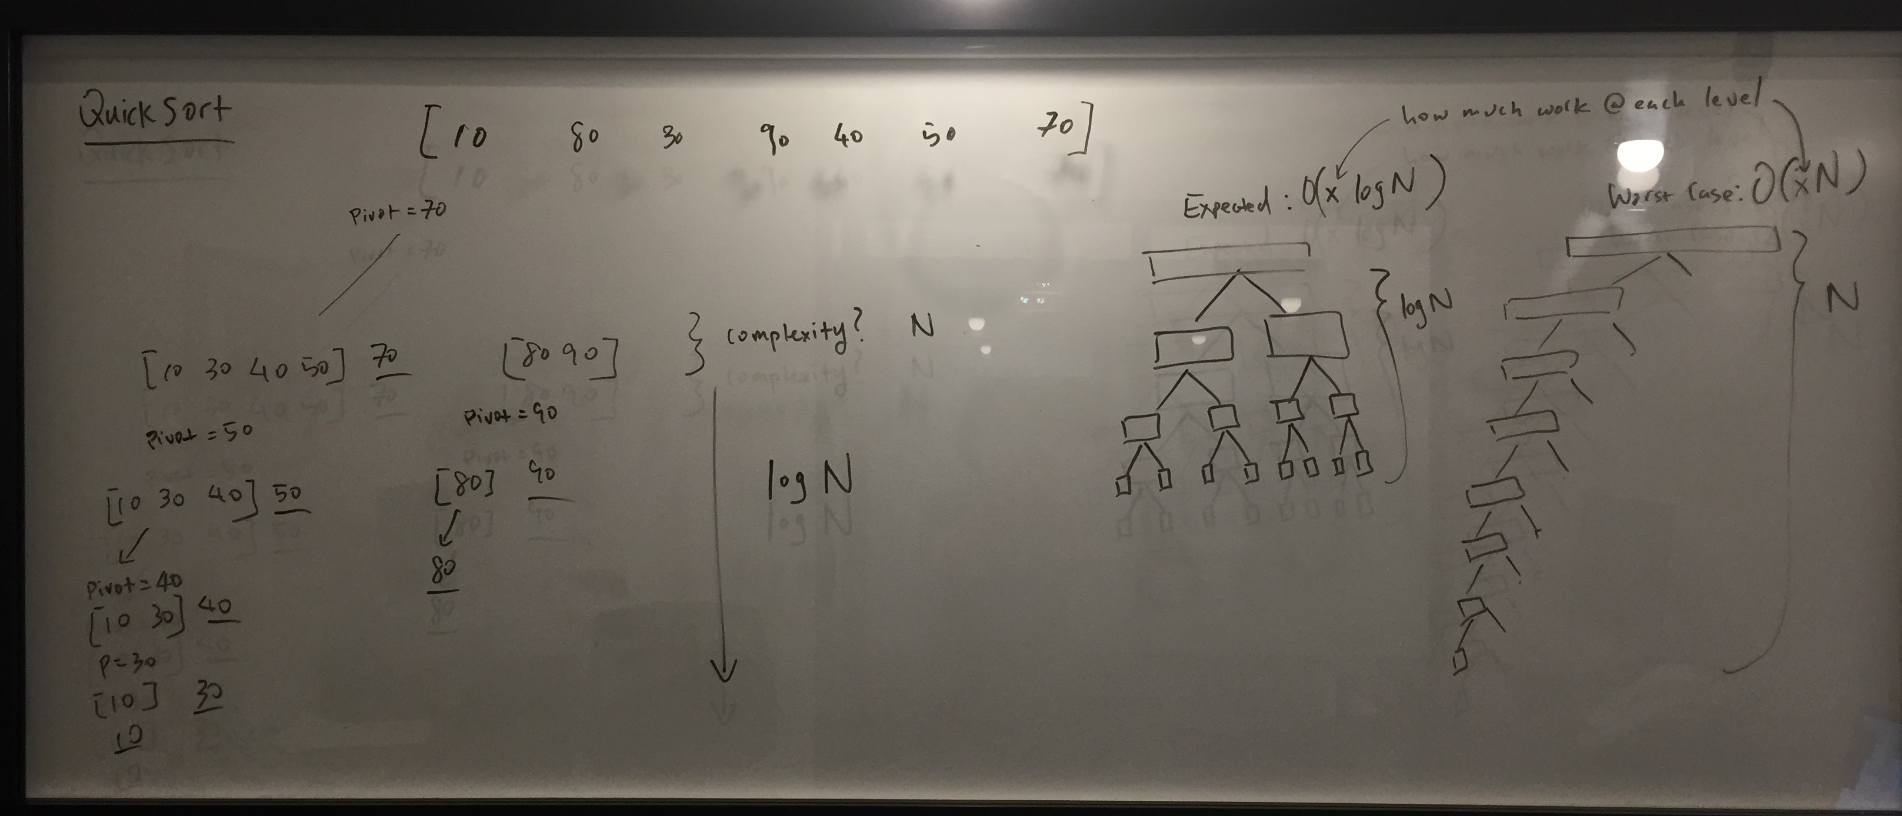 QuickSort
[10 80 30 90 40 50 70]
Pivot = 70
[10 30 40 50] 70 [80 90] } complexity? N
Pivot = 50
[10 30 40] 50
Pivot = 40
[10 30] 40
P = 30
[10] 30
10
Pivot = 90
[80] 90
80
log N
how much work @ each level
Expected: O(x log N)
} log N
Worst Case: O(x N)
} N